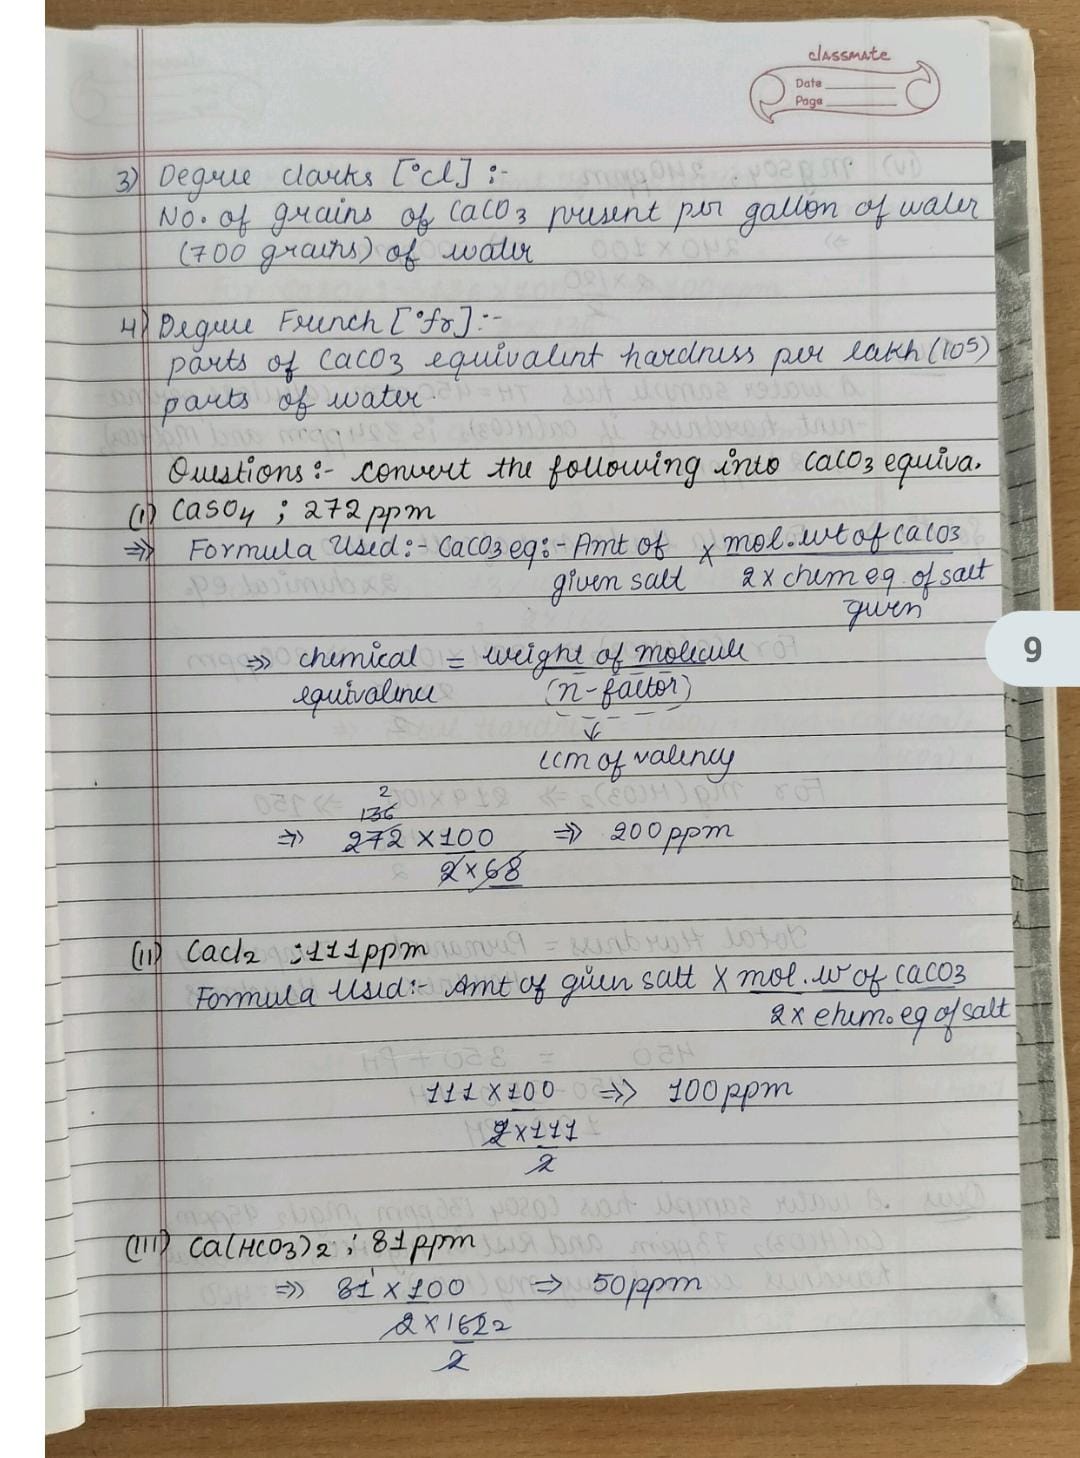 classmate
Date
Page
3) Degree clarks [°cl] :-
No. of grains of CaCO3 present per gallon of water
(700 grains) of water
4) Degree French [°fr] :-
parts of CaCO3 equivalent hardness per lakh (10⁵)
parts of water.
Questions :- convert the following into CaCO3 equiva.
(i) CaSO4 ; 272 ppm
⇒ Formula Used :- CaCO3 eq :- Amt of × mol. wt of CaCO3
given salt 2 × chem eq. of salt
given
⇒ chemical = weight of molecule
equivalence (n-factor)
↓
LCM of valency
2
136
⇒ 272 × 100 ⇒ 200 ppm
2 × 68
(ii) CaCl2 ; 111 ppm
Formula Used :- Amt of given salt × mol. w of CaCO3
2 × chem. eq of salt
111 × 100 ⇒ 100 ppm
2 × 111
2
(iii) Ca(HCO3)2 ; 81 ppm
⇒ 81 × 100 ⇒ 50 ppm
2 × 162 2
2
9